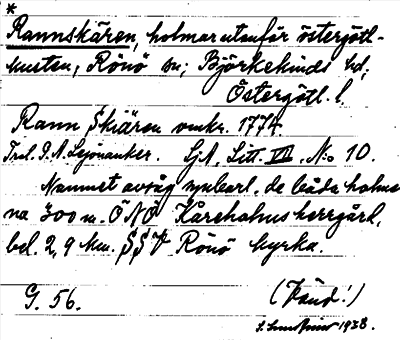 *
Rannskären, holmar utanför östergötl-
kusten, Rönö sn; Björkekinds hd;
Östergötl. l.
Rann Skiären omkr. 1774.
GjA, Litt. VII, N:o 10.
Namnet avsåg uppenbarl. de båda holmar-
na 700 m. ÖNÖ Kåreholms herrgård,
bel. 2,9 km. SSV Rönö kyrka.
G. 56.
(Känd!)
1938.